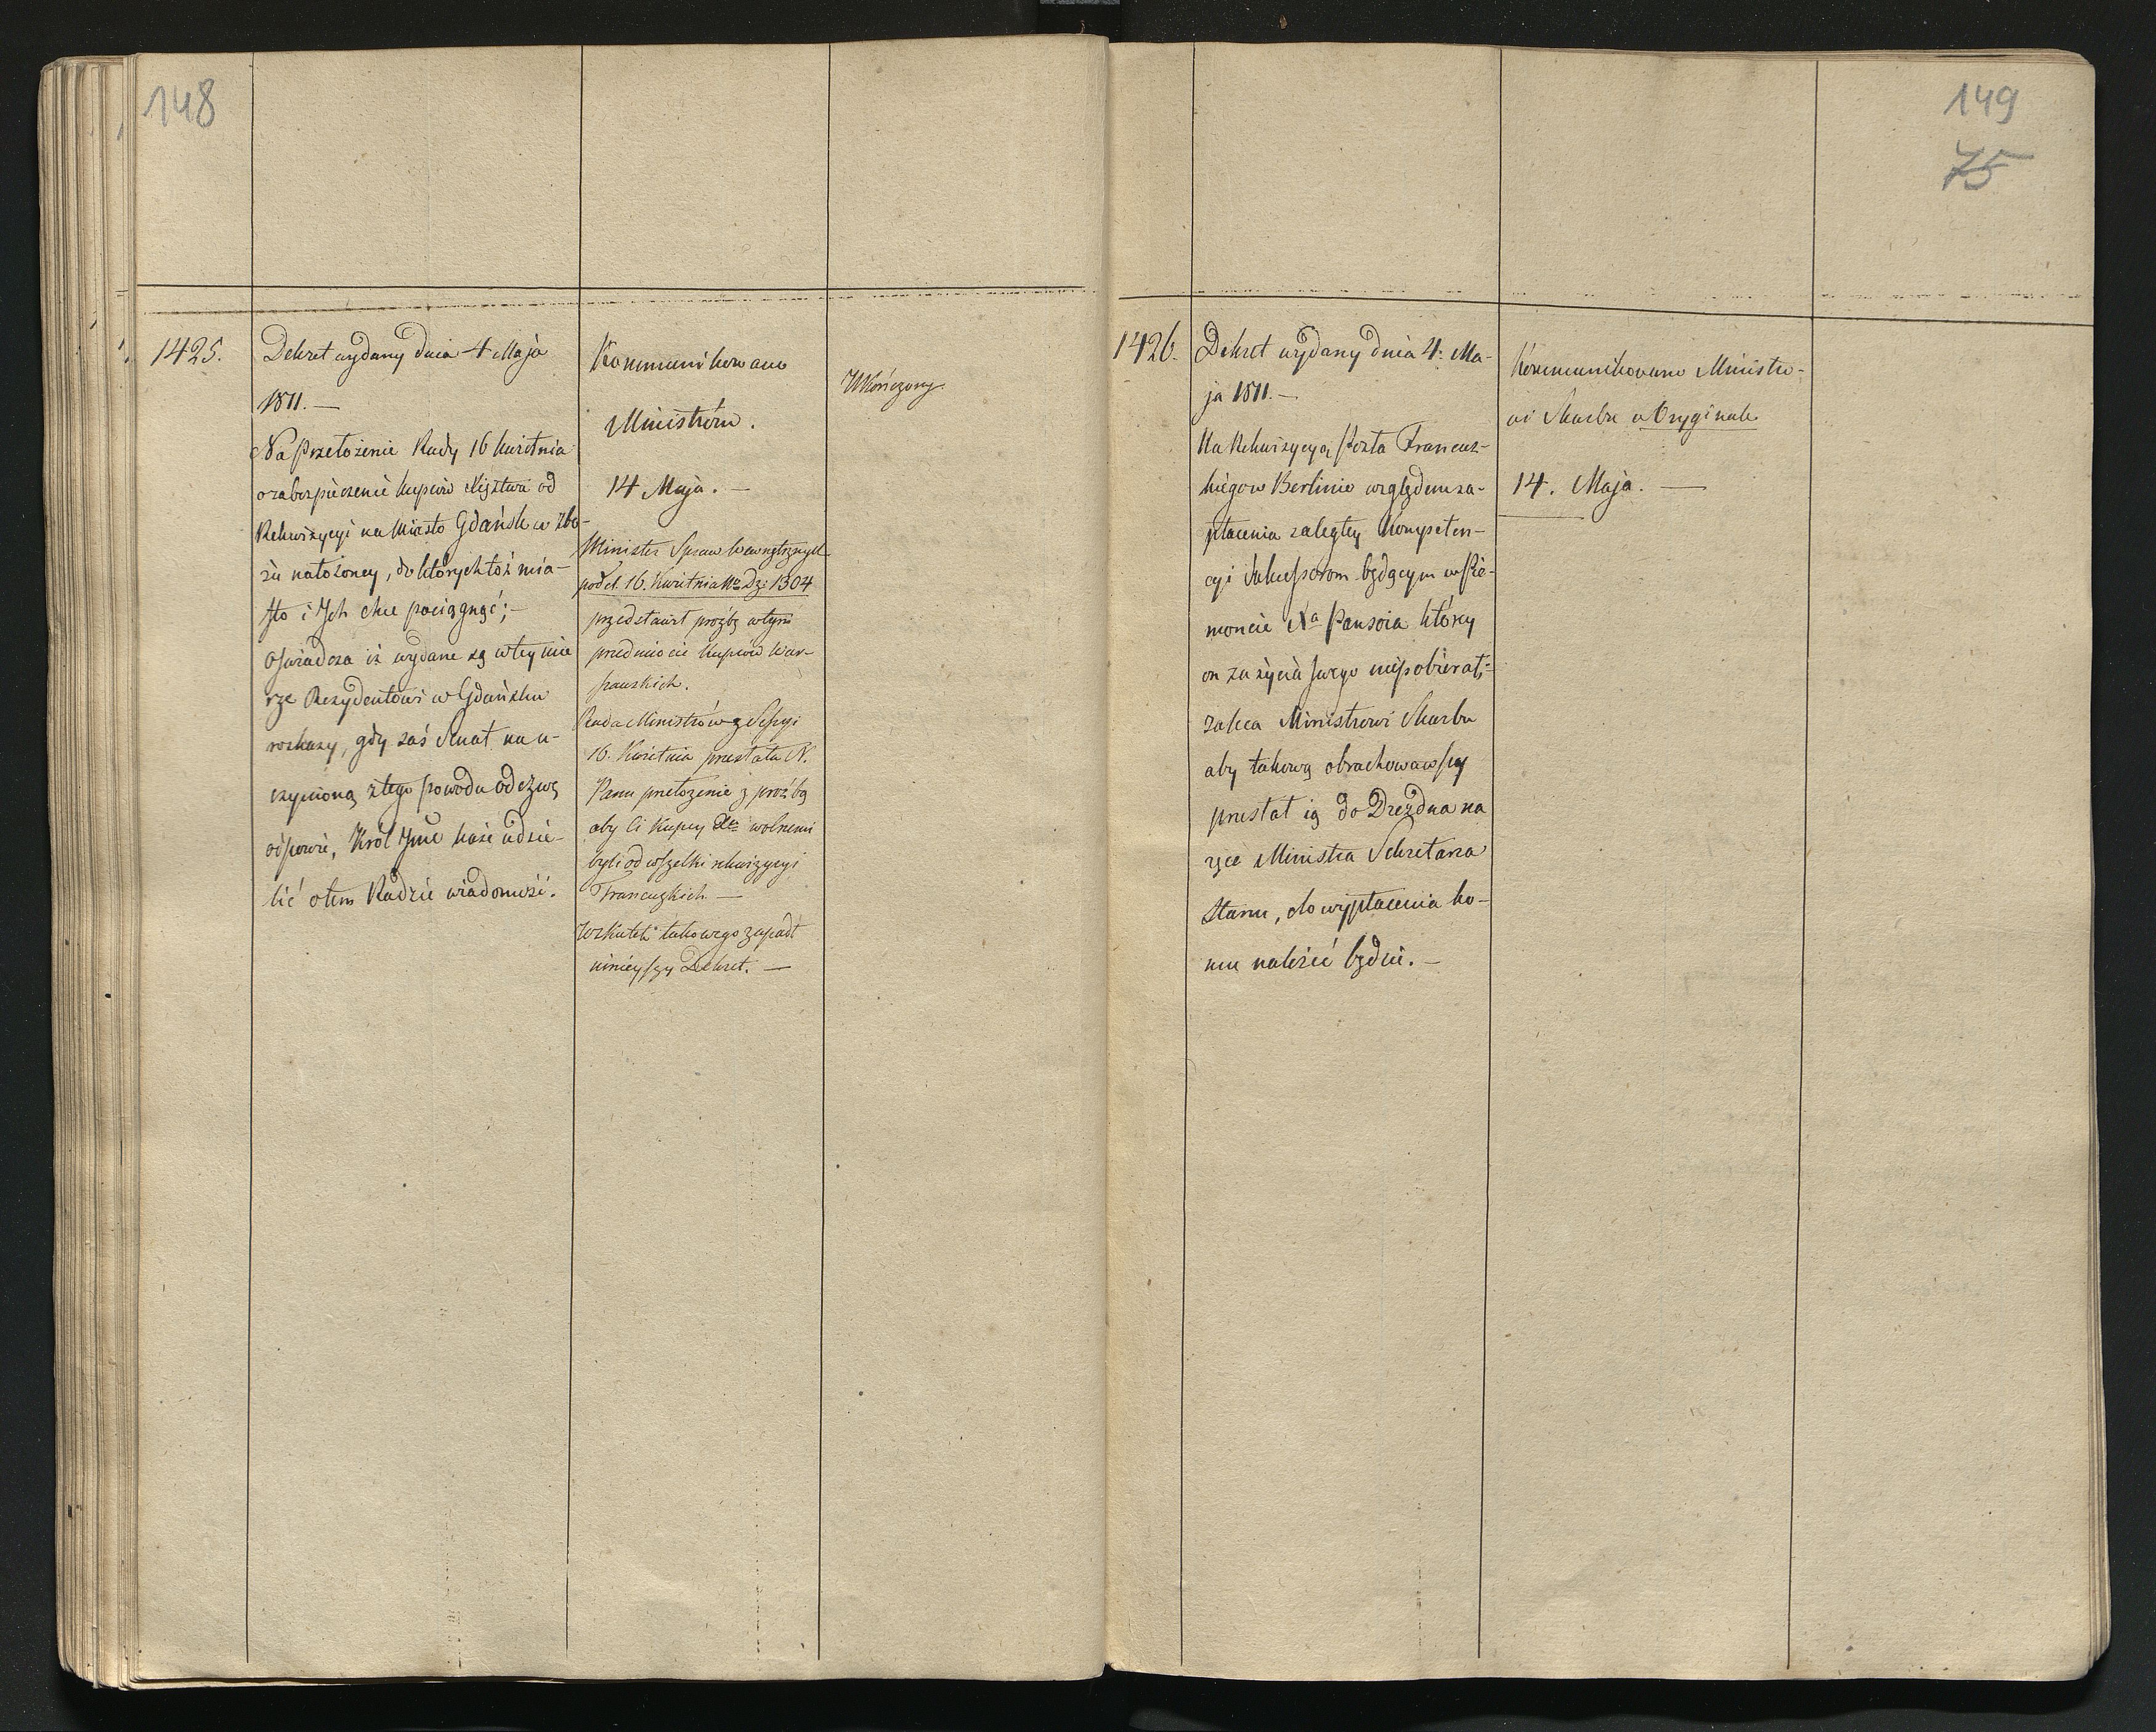 148
1425.
Dekret wydany dnia 4 Maja
1811. —
Na Przełożenie Rady 16 kwietnia
o zabezpieczenie kupców Księztwa od
Rekwizycyi na Miasto Gdańsk w zbo-
żu nałożoney, do których toż mia-
sto i Ich chce pociągnąć; —
oświadcza iż wydane są w tey mie
rze Rezydentowi w Gdańsku
rozkazy, gdy zaś Senat na u-
czynioną z tego powodu odezwę
odpowie, Król Jmć każe udzie-
lić o tem Radzie wiadomość.
Kommunikowano
Ministrów.
14 Maja. —
Minister Spraw Wewnętrznych
pod d. 16. Kwietnia No Dz: 1304
przedstawił proźbę w tym
przedmiocie Kupców War-
szawskich.
Rada Ministrów z Sessyi
16. Kwietnia przesłała N.
Panu przełożenie z proźbą
aby Ci Kupcy wolnemi
byli od wszelki rekwizycyi
Francuzkich —
W skutek takowego zapadł
ninieyszy Dekret. —
Ukończony.
149
75
1426.
Dekret wydany dnia 4. Ma-
ja 1811. —
Na Rekwizycyą Posła Francuz-
kiego w Berlinie względem za-
płacenia zaległey Kompeten-
cyi Sukcessorom będącym w Pie-
moncie Na Pansoia który
on za życia swego niepobierał;
zaleca Ministrowi Skarbu
aby takową obrachowawszy
przesłał ią do Drezdna na
ręce Ministra Sekretarza
Stanu, do wypłacenia ko-
mu należeć będzie. —
Kommunikowano Ministro-
wi Skarbu w Oryginale
14. Maja. —